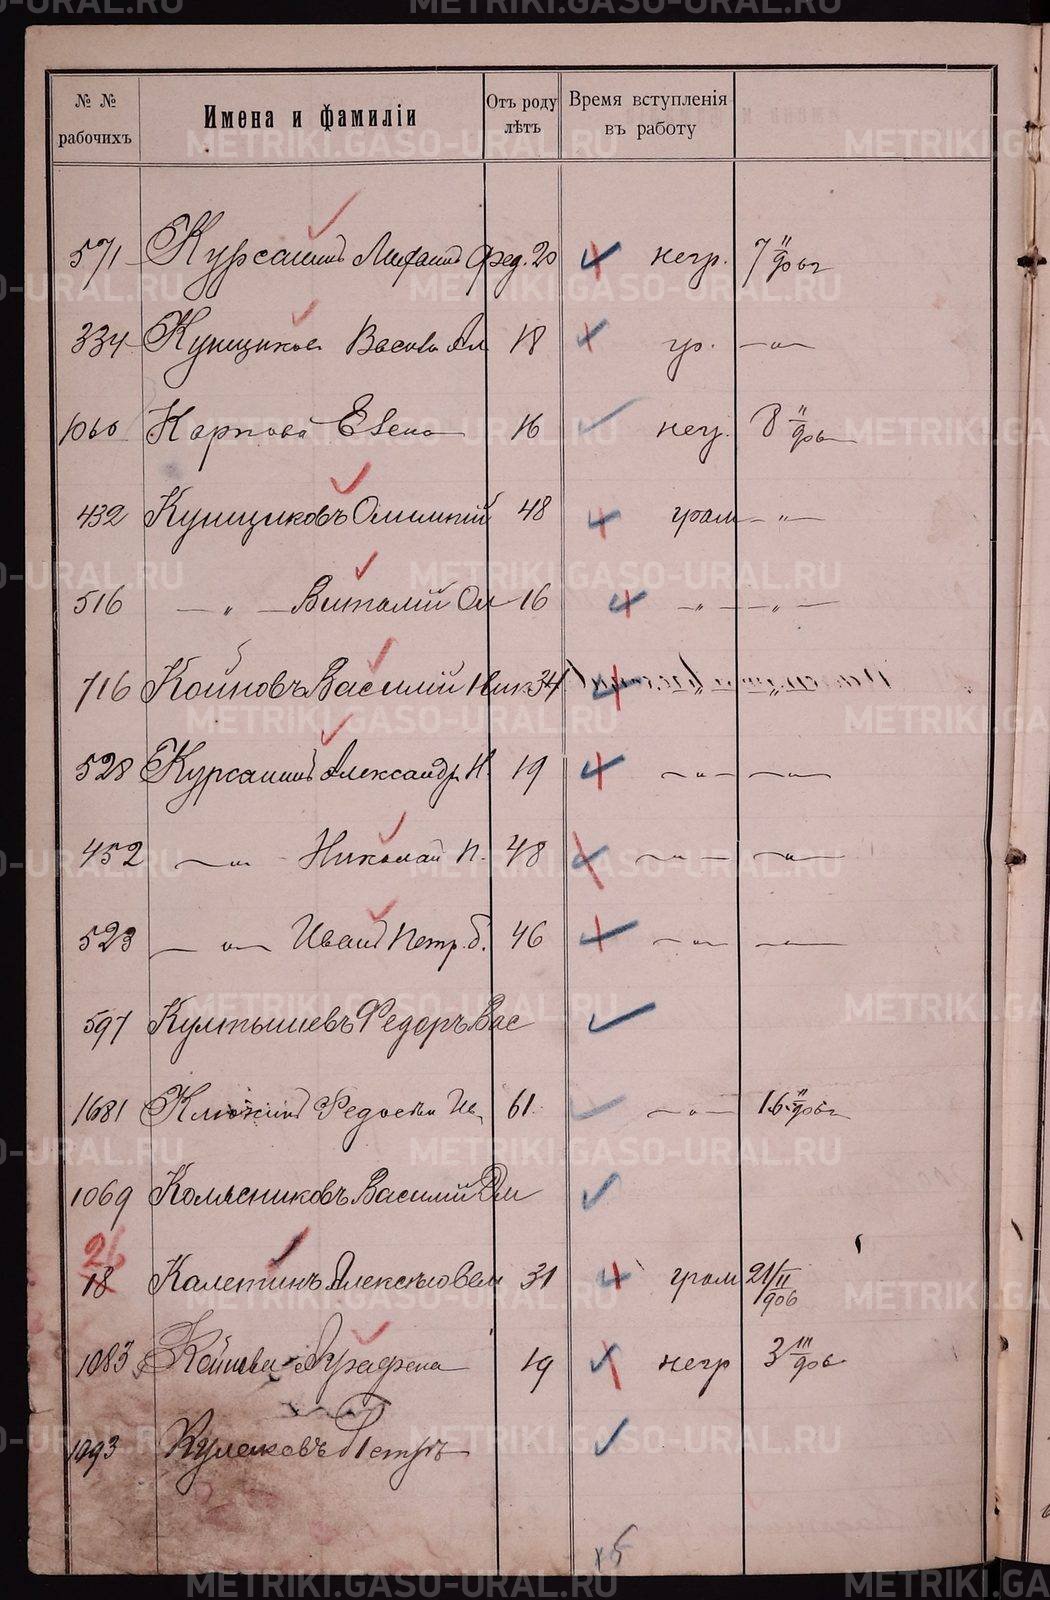 № № рабочихъ Имена и фамиліи Отъ роду лѣтъ Время вступленія въ работу
571 Курсаинъ Михаилъ Фед. 20 негр. 7 II/906 г
334 Кунщиковъ 18 гр. —"—
1060 Карпова Елена 16 негр. 8 II/906
432 Кунщиковъ 48 грам —"—
516 —"— Виталій Ол 16 —"— —"—
716 Койновъ Василій Ник 34
528 Курсаинъ Александр. Н. 19 —"— —"—
452 —"— Николай П. 48 —"— —"—
523 —"— Иванъ Петр. б. 46 —"— ——
597 Култышевъ Федоръ Вас
1681 Федосѣй Ив. 61 —"— 16 II/906 г
1069 Колясниковъ Василій
26
18 Калетинъ Алексѣй 31 грам 21/II 1906
1083 Койнова Аграфена 19 негр 3 III/906
1093 Кулаковъ Петръ
x5
METRIKI.GASO-URAL.RU